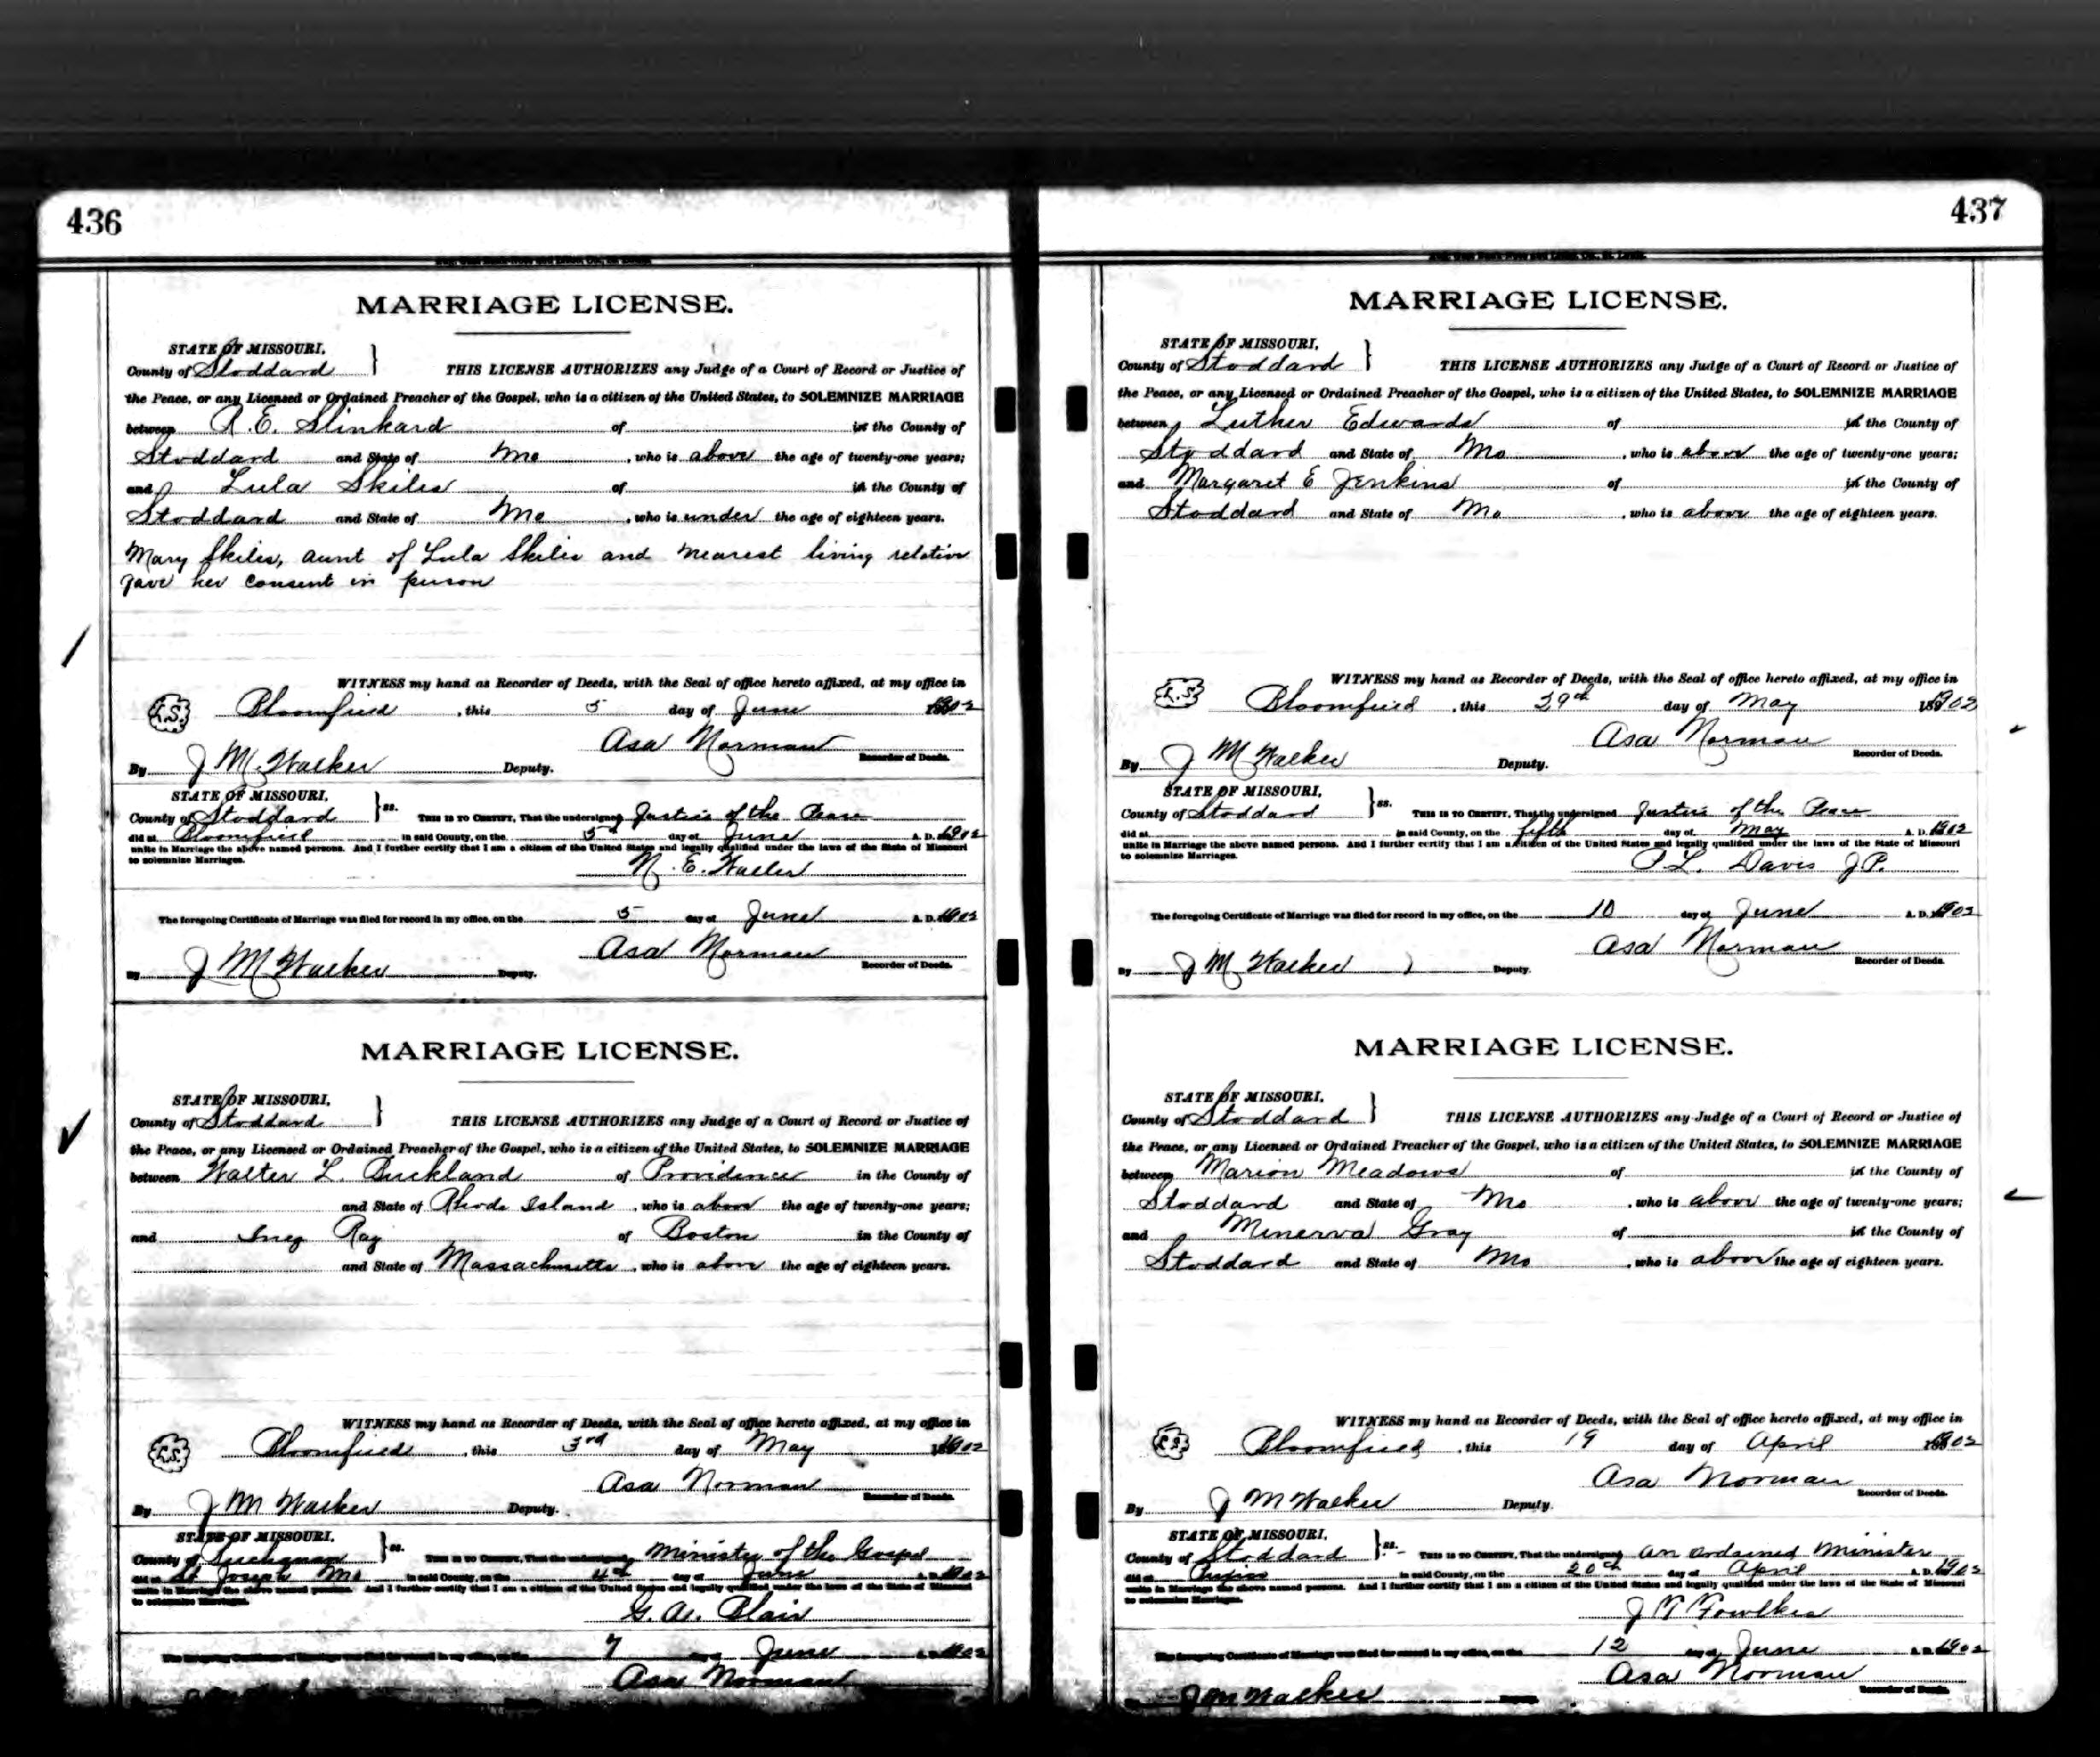 436
MARRIAGE LICENSE.
STATE OF MISSOURI,
County of Stoddard } THIS LICENSE AUTHORIZES any Judge of a Court of Record or Justice of
the Peace, or any Licensed or Ordained Preacher of the Gospel, who is a citizen of the United States, to SOLEMNIZE MARRIAGE
between R. E. Slinkard of in the County of
Stoddard and State of Mo , who is above the age of twenty-one years;
and Lula Skiles of in the County of
Stoddard and State of Mo , who is under the age of eighteen years.
Mary Skiles, aunt of Lula Skiles and nearest living relative
gave her consent in person
WITNESS my hand as Recorder of Deeds, with the Seal of office hereto affixed, at my office in
L.S. Bloomfield , this 5 day of June 1902
Asa Norman
Recorder of Deeds.
By J M. Walker Deputy.
STATE OF MISSOURI,
County of Stoddard } ss. THIS IS TO CERTIFY, That the undersigned Justice of the Peace
did at Bloomfield in said County, on the 5th day of June A. D. 1902
unite in Marriage the above named persons. And I further certify that I am a citizen of the United States and legally qualified under the laws of the State of Missouri
to solemnize Marriages.
N. E. Waller
The foregoing Certificate of Marriage was filed for record in my office, on the 5 day of June A. D. 1902
Asa Norman
By J M Walker Deputy. Recorder of Deeds.
MARRIAGE LICENSE.
STATE OF MISSOURI,
County of Stoddard } THIS LICENSE AUTHORIZES any Judge of a Court of Record or Justice of
the Peace, or any Licensed or Ordained Preacher of the Gospel, who is a citizen of the United States, to SOLEMNIZE MARRIAGE
between Walter L. Buckland of Providence in the County of
and State of Rhode Island , who is above the age of twenty-one years;
and Inez Ray of Boston in the County of
and State of Massachusetts , who is above the age of eighteen years.
WITNESS my hand as Recorder of Deeds, with the Seal of office hereto affixed, at my office in
L.S. Bloomfield , this 3rd day of May 1902
Asa Norman
Recorder of Deeds.
By J M Walker Deputy.
STATE OF MISSOURI,
County of Buchanan } ss. THIS IS TO CERTIFY, That the undersigned Minister of the Gospel
did at St Joseph Mo in said County, on the 4th day of June A. D. 1902
unite in Marriage the above named persons. And I further certify that I am a citizen of the United States and legally qualified under the laws of the State of Missouri
to solemnize Marriages.
G. A. Blair
The foregoing Certificate of Marriage was filed for record in my office, on the 7 day of June A. D. 1902
Asa Norman
437
MARRIAGE LICENSE.
STATE OF MISSOURI,
County of Stoddard } THIS LICENSE AUTHORIZES any Judge of a Court of Record or Justice of
the Peace, or any Licensed or Ordained Preacher of the Gospel, who is a citizen of the United States, to SOLEMNIZE MARRIAGE
between Luther Edwards of in the County of
Stoddard and State of Mo , who is above the age of twenty-one years;
and Margaret E Jenkins of in the County of
Stoddard and State of Mo , who is above the age of eighteen years.
WITNESS my hand as Recorder of Deeds, with the Seal of office hereto affixed, at my office in
L.S Bloomfield , this 29th day of May 1902
Asa Norman
Recorder of Deeds.
By J M Walker Deputy.
STATE OF MISSOURI,
County of Stoddard } ss. THIS IS TO CERTIFY, That the undersigned Justice of the Peace
did at in said County, on the fifth day of May A. D. 1902
unite in Marriage the above named persons. And I further certify that I am a citizen of the United States and legally qualified under the laws of the State of Missouri
to solemnize Marriages.
P L. Davis J P.
The foregoing Certificate of Marriage was filed for record in my office, on the 10 day of June A. D. 1902
Asa Norman
By J M Walker Deputy. Recorder of Deeds.
MARRIAGE LICENSE.
STATE OF MISSOURI,
County of Stoddard } THIS LICENSE AUTHORIZES any Judge of a Court of Record or Justice of
the Peace, or any Licensed or Ordained Preacher of the Gospel, who is a citizen of the United States, to SOLEMNIZE MARRIAGE
between Marion Meadows of in the County of
Stoddard and State of Mo , who is above the age of twenty-one years;
and Minerva Gray of in the County of
Stoddard and State of Mo , who is above the age of eighteen years.
WITNESS my hand as Recorder of Deeds, with the Seal of office hereto affixed, at my office in
L.S. Bloomfield , this 19 day of April 1902
Asa Norman
Recorder of Deeds.
By J M Walker Deputy.
STATE OF MISSOURI,
County of Stoddard } ss. THIS IS TO CERTIFY, That the undersigned an ordained Minister
did at in said County, on the 20th day of April A. D. 1902
unite in Marriage the above named persons. And I further certify that I am a citizen of the United States and legally qualified under the laws of the State of Missouri
to solemnize Marriages.
J T Fowlkes
The foregoing Certificate of Marriage was filed for record in my office, on the 12 day of June A. D. 1902
Asa Norman
J M Walker Deputy. Recorder of Deeds.